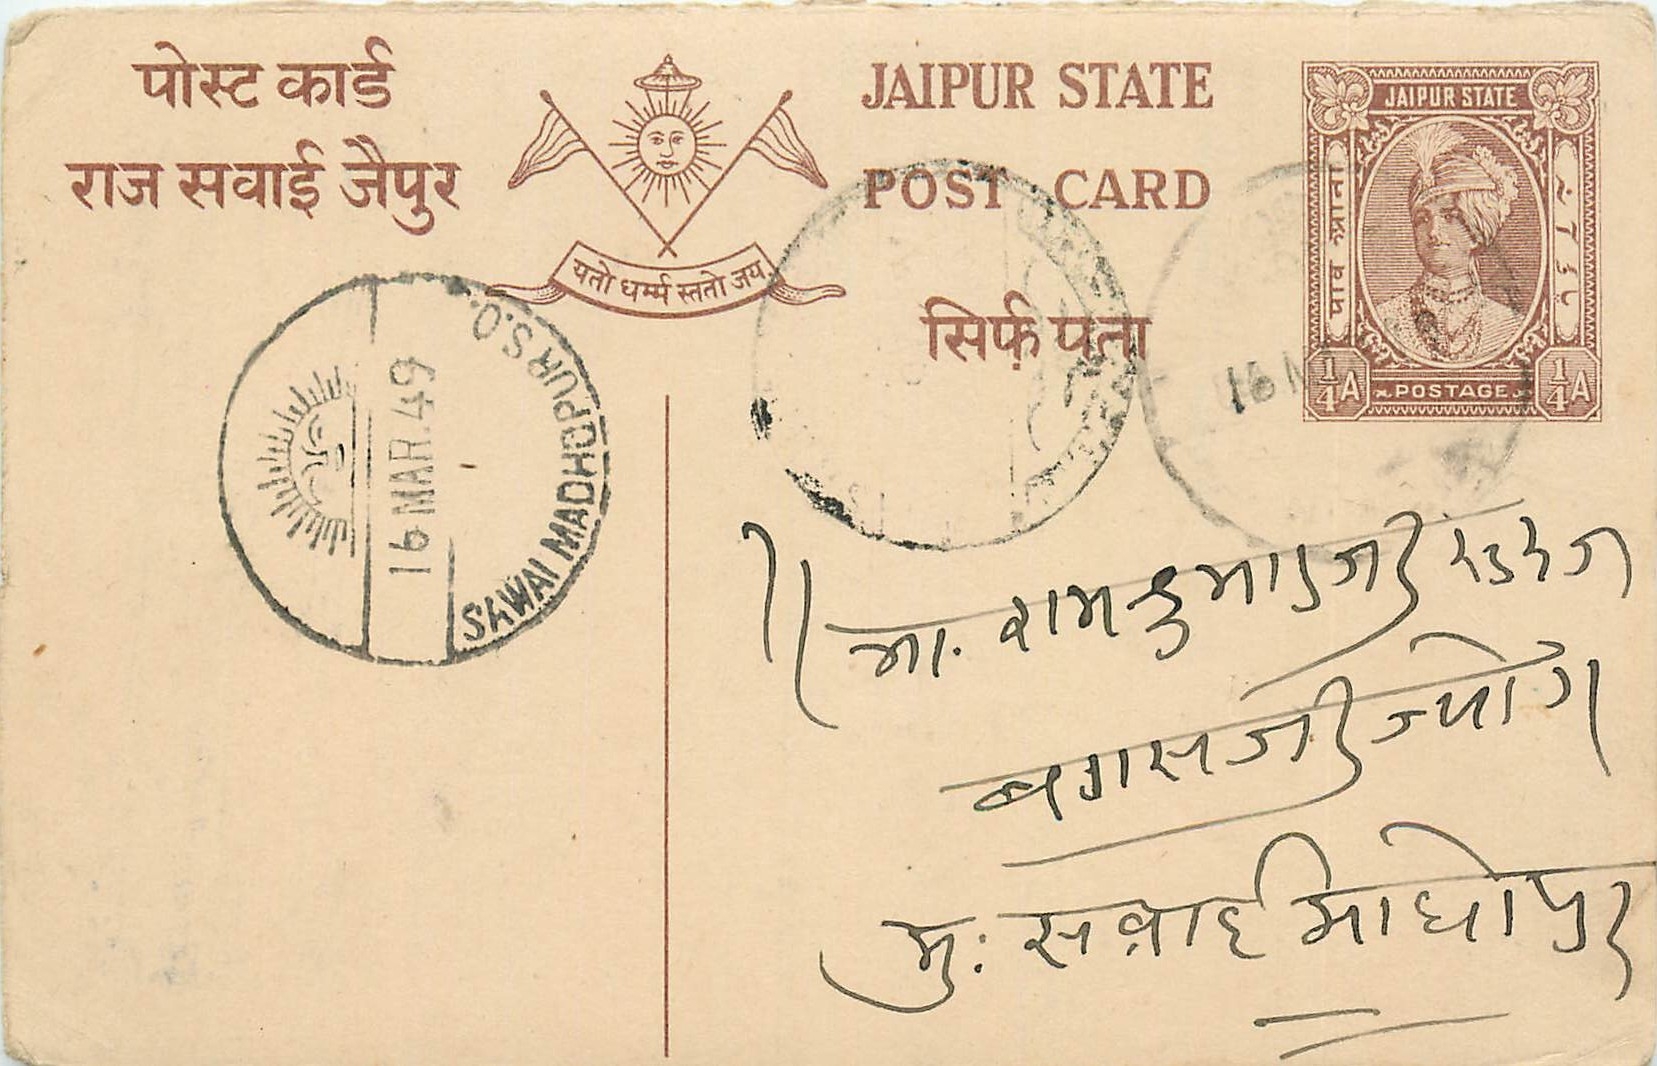 पोस्ट कार्ड
राज सवाई जैपुर
यतो धर्म्म स्ततो जय
JAIPUR STATE
POST CARD
सिर्फ़ पता
JAIPUR STATE
पाव आना
POSTAGE
1/4 A
1/4 A
SAWAI MADHOPUR S.O.
16 MAR. 49
16 M
मा. रामकुमारजी
बगसजी
मु: सवाई माधोपुर